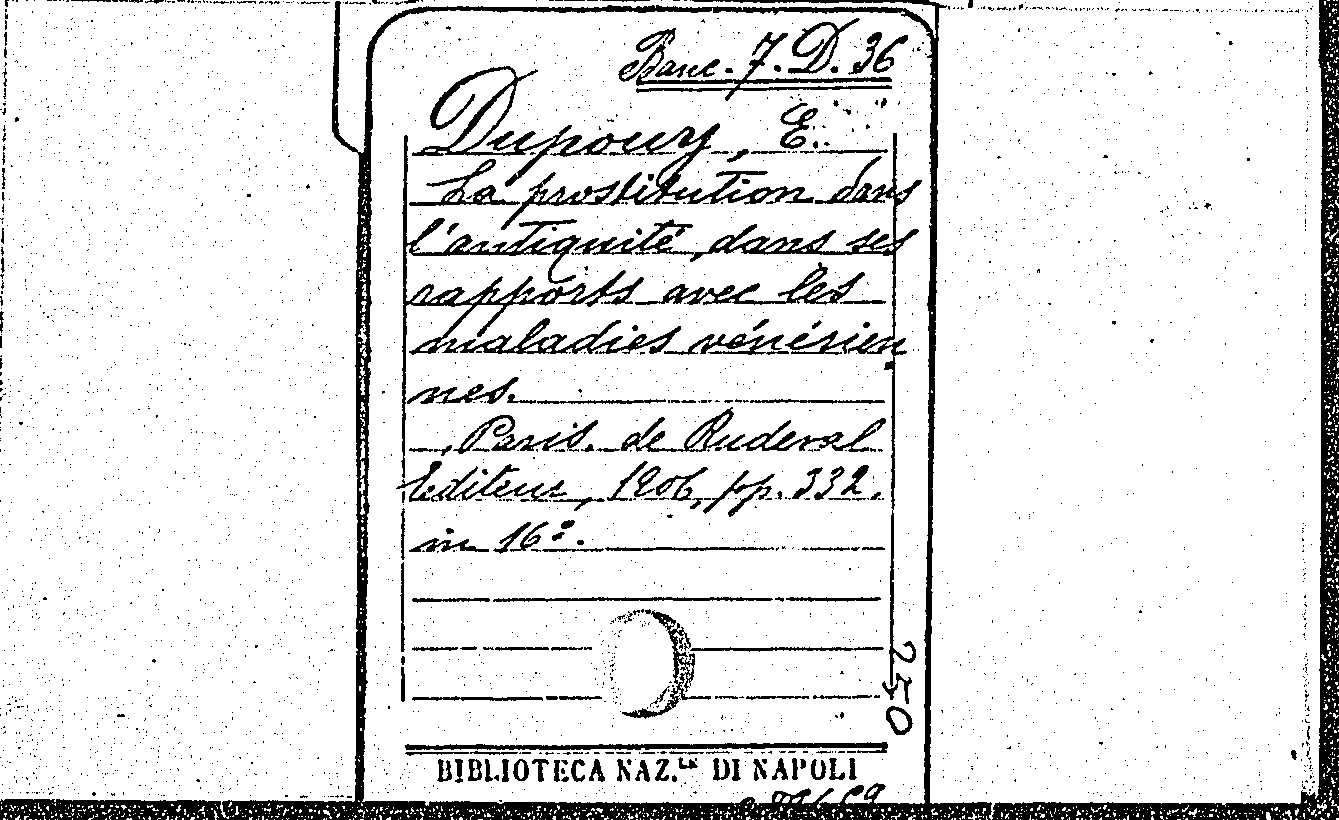 Banc. 7. D. 36
Dupouy, E.
La prostitution dans
l'antiquité, dans ses
rapports avec les
maladies vénérien
nes.
Paris. de Ruderal
Editeur, 1906, pp. 332.
in 16º.
250
BIBLIOTECA NAZ.LE DI NAPOLI